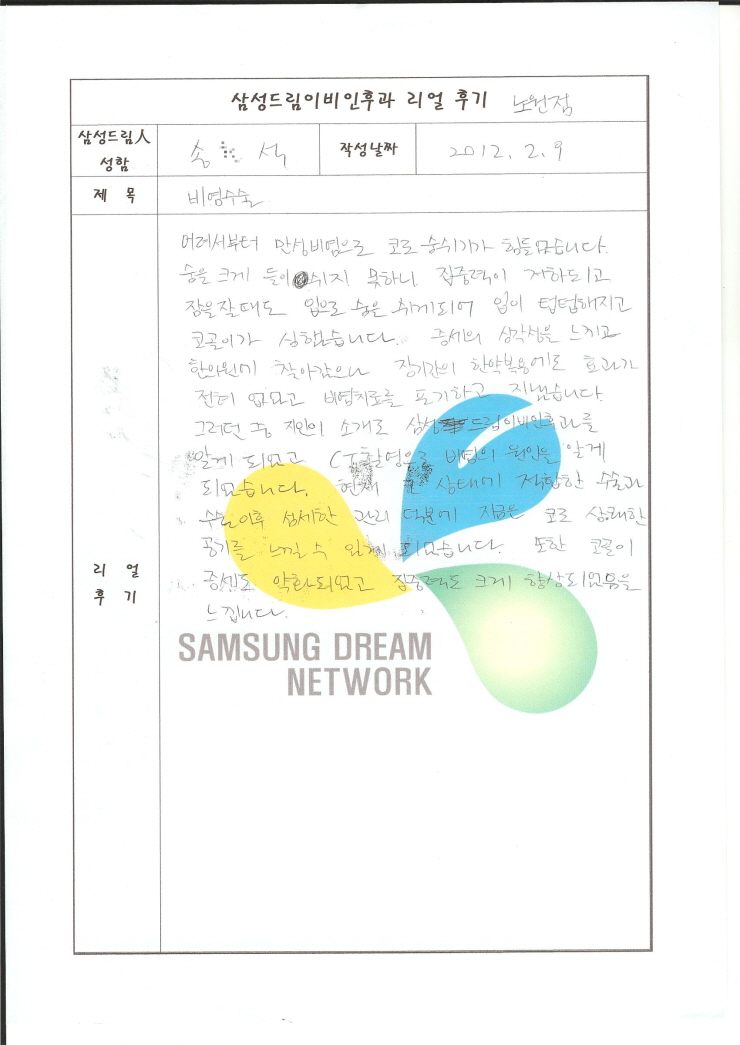 삼성드림이비인후과 리얼 후기 노원점
삼성드림人 성함 송 석 작성날짜 2012. 2. 9
제 목 비염수술
어려서부터 만성비염으로 코로 숨쉬기가 힘들었습니다.
숨을 크게 들이쉬지 못하니 집중력이 저하되고
잠을잘때도 입으로 숨을 쉬게되어 입이 텁텁해지고
코골이가 심했습니다. 증세의 심각성을 느끼고
한의원에 찾아갔으나 장기간의 한약복용에도 효과가
전혀 없었고 비염치료를 포기하고 지냈습니다.
그러던 중 지인의 소개로 삼성드림이비인후과를
알게 되었고 CT촬영으로 비염의 원인을 알게
되었습니다. 현재 코 상태에 적합한 수술과
수술이후 섬세한 관리 덕분에 지금은 코로 상쾌한
공기를 느낄 수 있게 되었습니다. 또한 코골이
증세도 약화되었고 집중력도 크게 향상되었음을
느낍니다.
리 얼
후 기
SAMSUNG DREAM
NETWORK